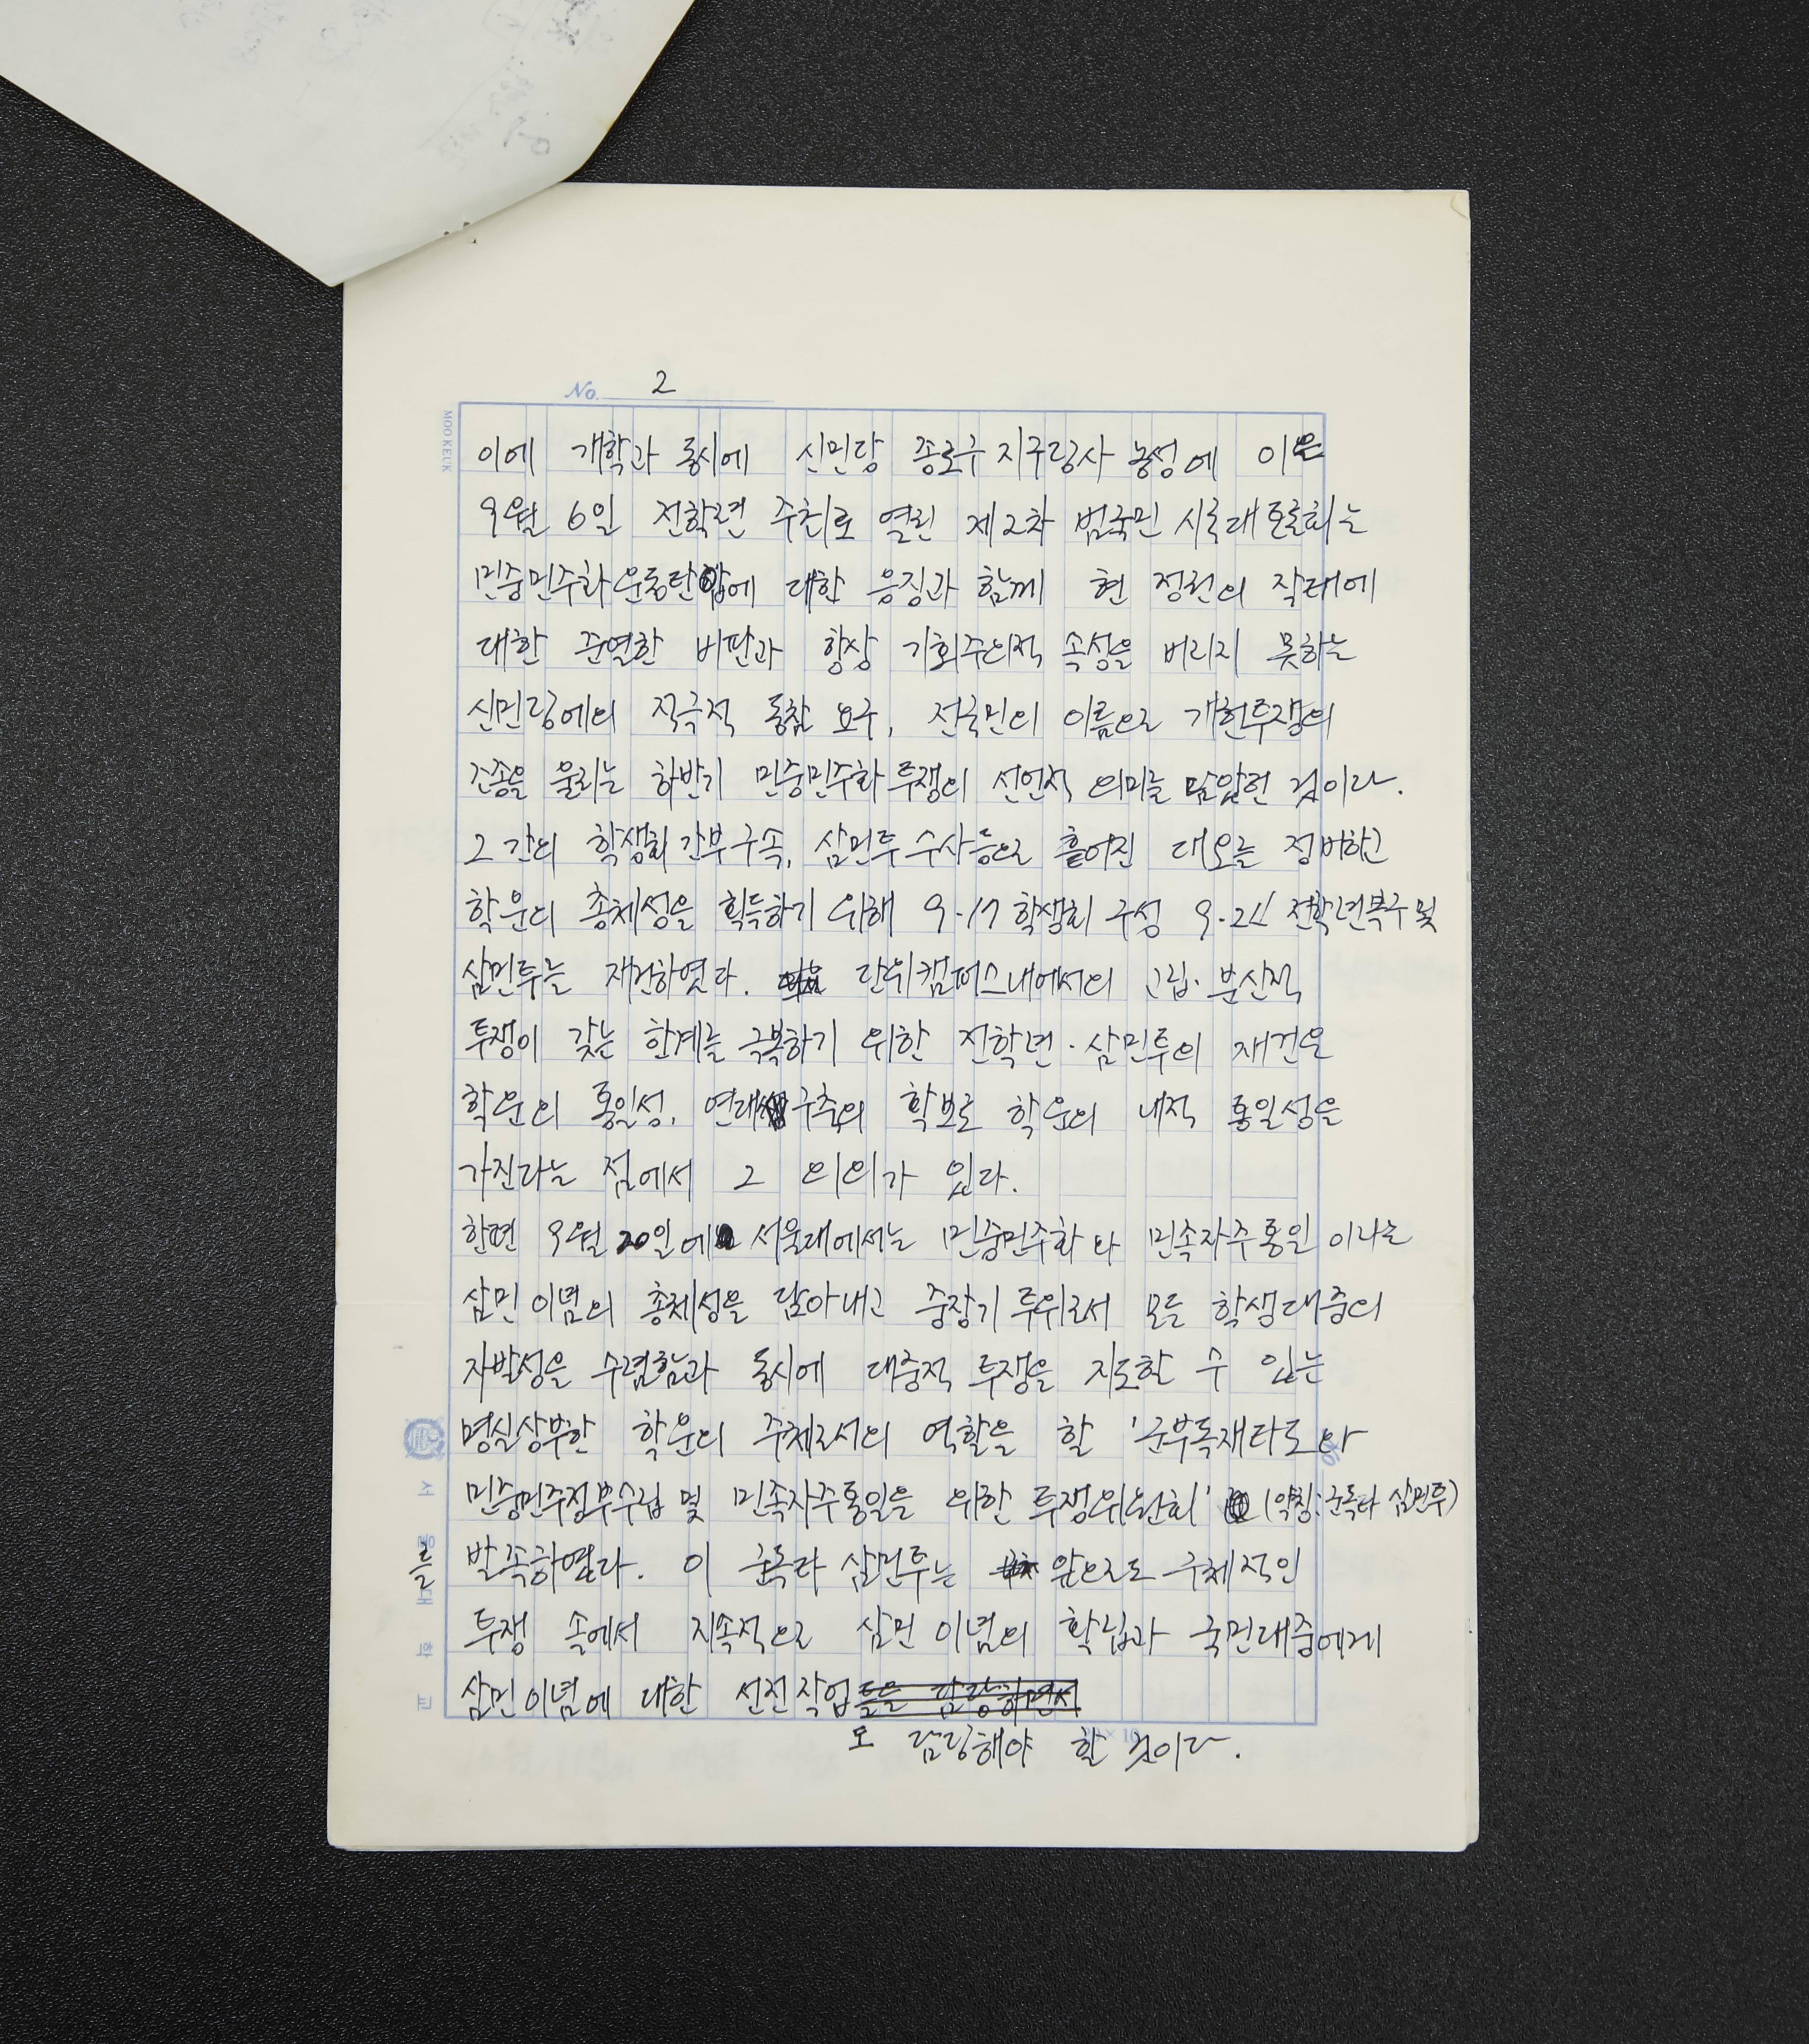 No. 2
MOO KEUK
이에 개학과 동시에 신민당 종로구 지구당사 농성에 이은
9월 6일 전학련 주최로 열린 제2차 범국민 시국대토론회는
민중민주화운동탄압에 대한 응징과 함께 현 정권의 작태에
대한 준열한 비판과 항상 기회주의적 속성을 버리지 못하는
신민당에의 적극적 동참 요구, 전국민의 이름으로 개헌투쟁의
조종을 울리는 하반기 민중민주화투쟁의 선언적 의미를 담았던 것이다.
그간의 학생회 간부구속, 삼민투 수사등으로 흩어진 대오를 정비하고
학운의 총체성을 획득하기 위해 9.17 학생회 구성 전학련복구 및
삼민투를 재건하였다. 단위캠퍼스내에서의 고립·분산적
투쟁이 갖는 한계를 극복하기 위한 전학련·삼민투의 재건은
학운의 통일성, 연대 구축의 확보로 학운의 내적 통일성을
가진다는 점에서 그 의의가 있다.
한편 9월 20일에 서울대에서는 민중민주화와 민족자주통일 이라는
삼민이념의 총체성을 담아내고 중장기 투위로서 모든 학생대중의
자발성을 수렴함과 동시에 대중적 투쟁을 지도할 수 있는
명실상부한 학운의 주체로서의 역할을 할 '군부독재타도와
민중민주정부수립 및 민족자주통일을 위한 투쟁위원회' (약칭: 군독타 삼민투)
를 발족하였다. 이 군독타 삼민투는 앞으로도 구체적인
투쟁 속에서 지속적으로 삼민이념의 확립과 국민대중에게
삼민이념에 대한 선전작업들을 담당하면서
도 담당해야 할 것이다.
서울대학교